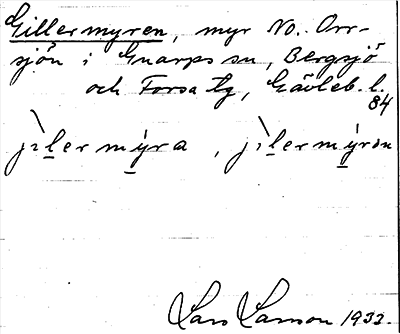 Gillermyren, myr No. Orr-
sjön i Gnarps sn, Bergsjö
och Forsa tg, Gävleb. l.
84
j̀ɩlermýra, j̀ɩlermýrən
Lars Larsson 1933.